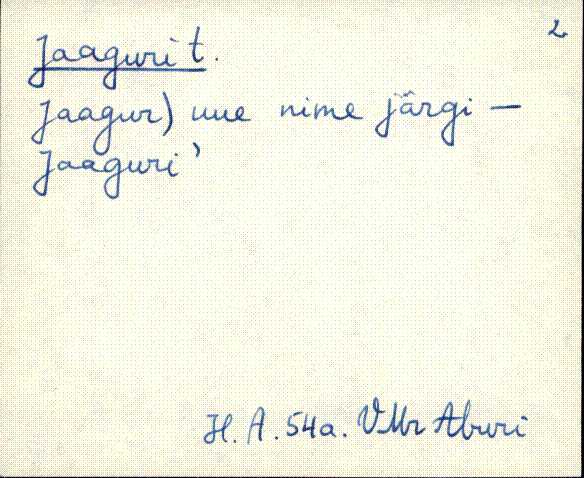 2
Jaaguri t.
Jaagur) uue nime järgi —
Jaaguri'
H. A. 54a. VMr Aburi